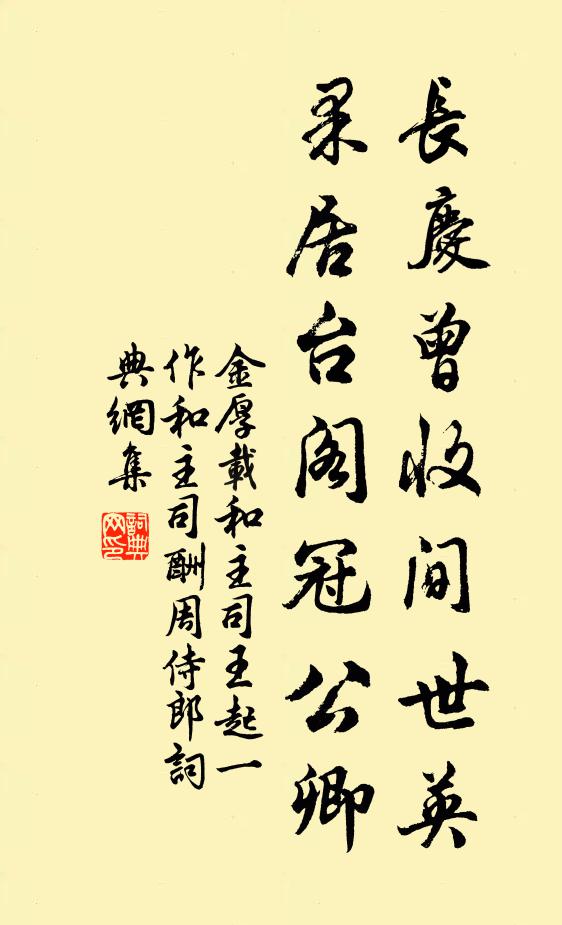 長慶曾收間世英
果居台閣冠公卿
金厚載和主司王起一
作和主司酬周侍郎詞
典網集
詞典
网印